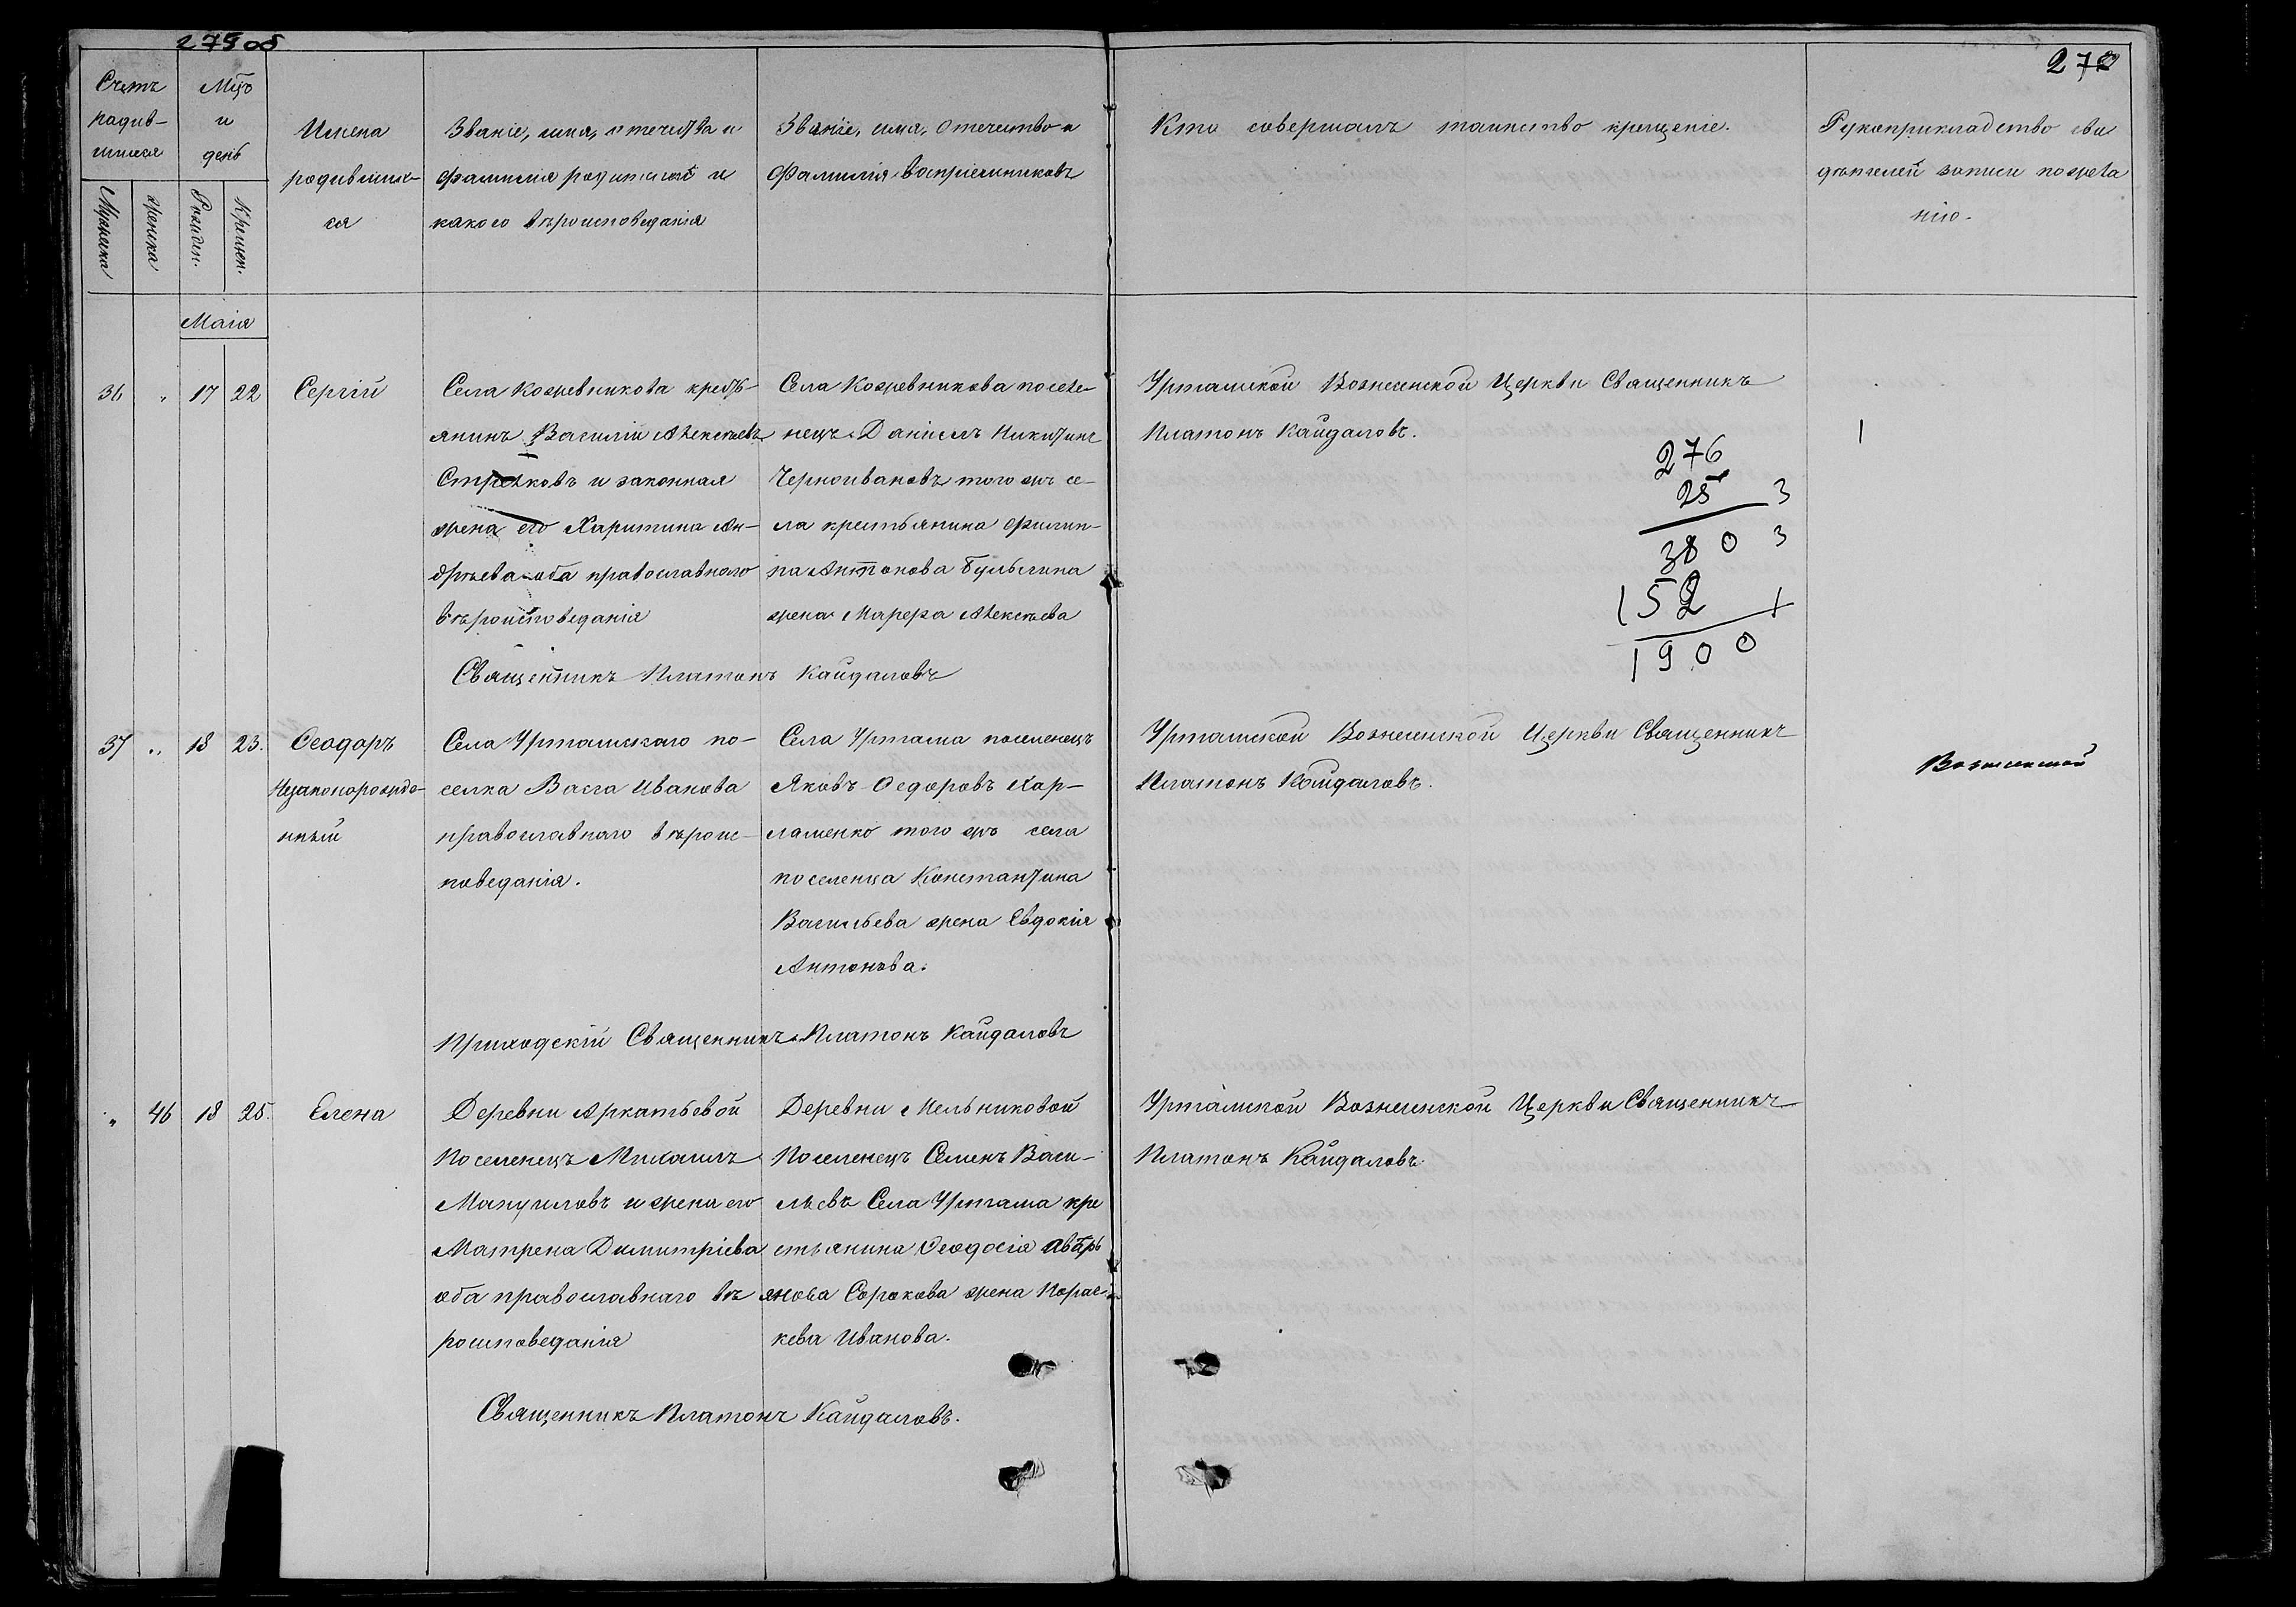 275об
272
Счетъ родив-шихся
Мцъ и день
Имена родивших-ся
Званіе, имя, отечества и фамилія родителей и какого вѣроисповеданія
Званіе, имя, отечество и фамилія воспріемниковъ
Кто совершалъ таинство крещеніе.
Рукоприкладство сви дѣтелей записи по жела нію.
Мужеска
женска
Рожден.
Крещен.
Маія
36 " 17 22 Сергій
Села Кожевникова кресть-
янинъ Василій Алексѣевъ
Стрелковъ и законная
жена его Харитина Ан-
дрѣева оба православнаго
вѣроисповеданія
Села Кожевникова поселе-
нецъ Даніилъ Никитинъ
Черноивановъ того жъ се-
ла крестьянина Филип-
па Антонова Булыгина
жена Марѳа Алексѣева
Уртамской Вознесенской Церкви Священникъ
Платонъ Кайдаловъ.
276
25 3
380 3
152 1
1900
Священникъ Платонъ Кайдаловъ
37 " 18 23. Ѳеодоръ
Незаконорожде-
нный
Села Уртамскаго по-
селка Васса Иванова
православнаго вѣроис-
поведанія.
Села Уртама поселенецъ
Яковъ Ѳедоровъ Хар-
ламенко того жъ села
поселенца Константина
Васильева жена Евдокія
Антонова.
Уртамской Вознесенской Церкви Священникъ
Платонъ Кайдаловъ.
Вознесенской
Приходскій Священникъ Платонъ Кайдаловъ
" 46 18 25. Елена
Деревни Аркатьевой
Поселенецъ Михаилъ
Мануиловъ и жена его
Матрена Димитріева
оба православнаго вѣ
роисповеданія
Деревни Мельниковой
Поселенецъ Семенъ Васи-
льевъ Села Уртама кре
стьянина Ѳеодосія
Сорокова жена Парас-
кева Иванова.
Уртамской Вознесенской Церкви Священникъ
Платонъ Кайдаловъ.
Священникъ Платонъ Кайдаловъ.